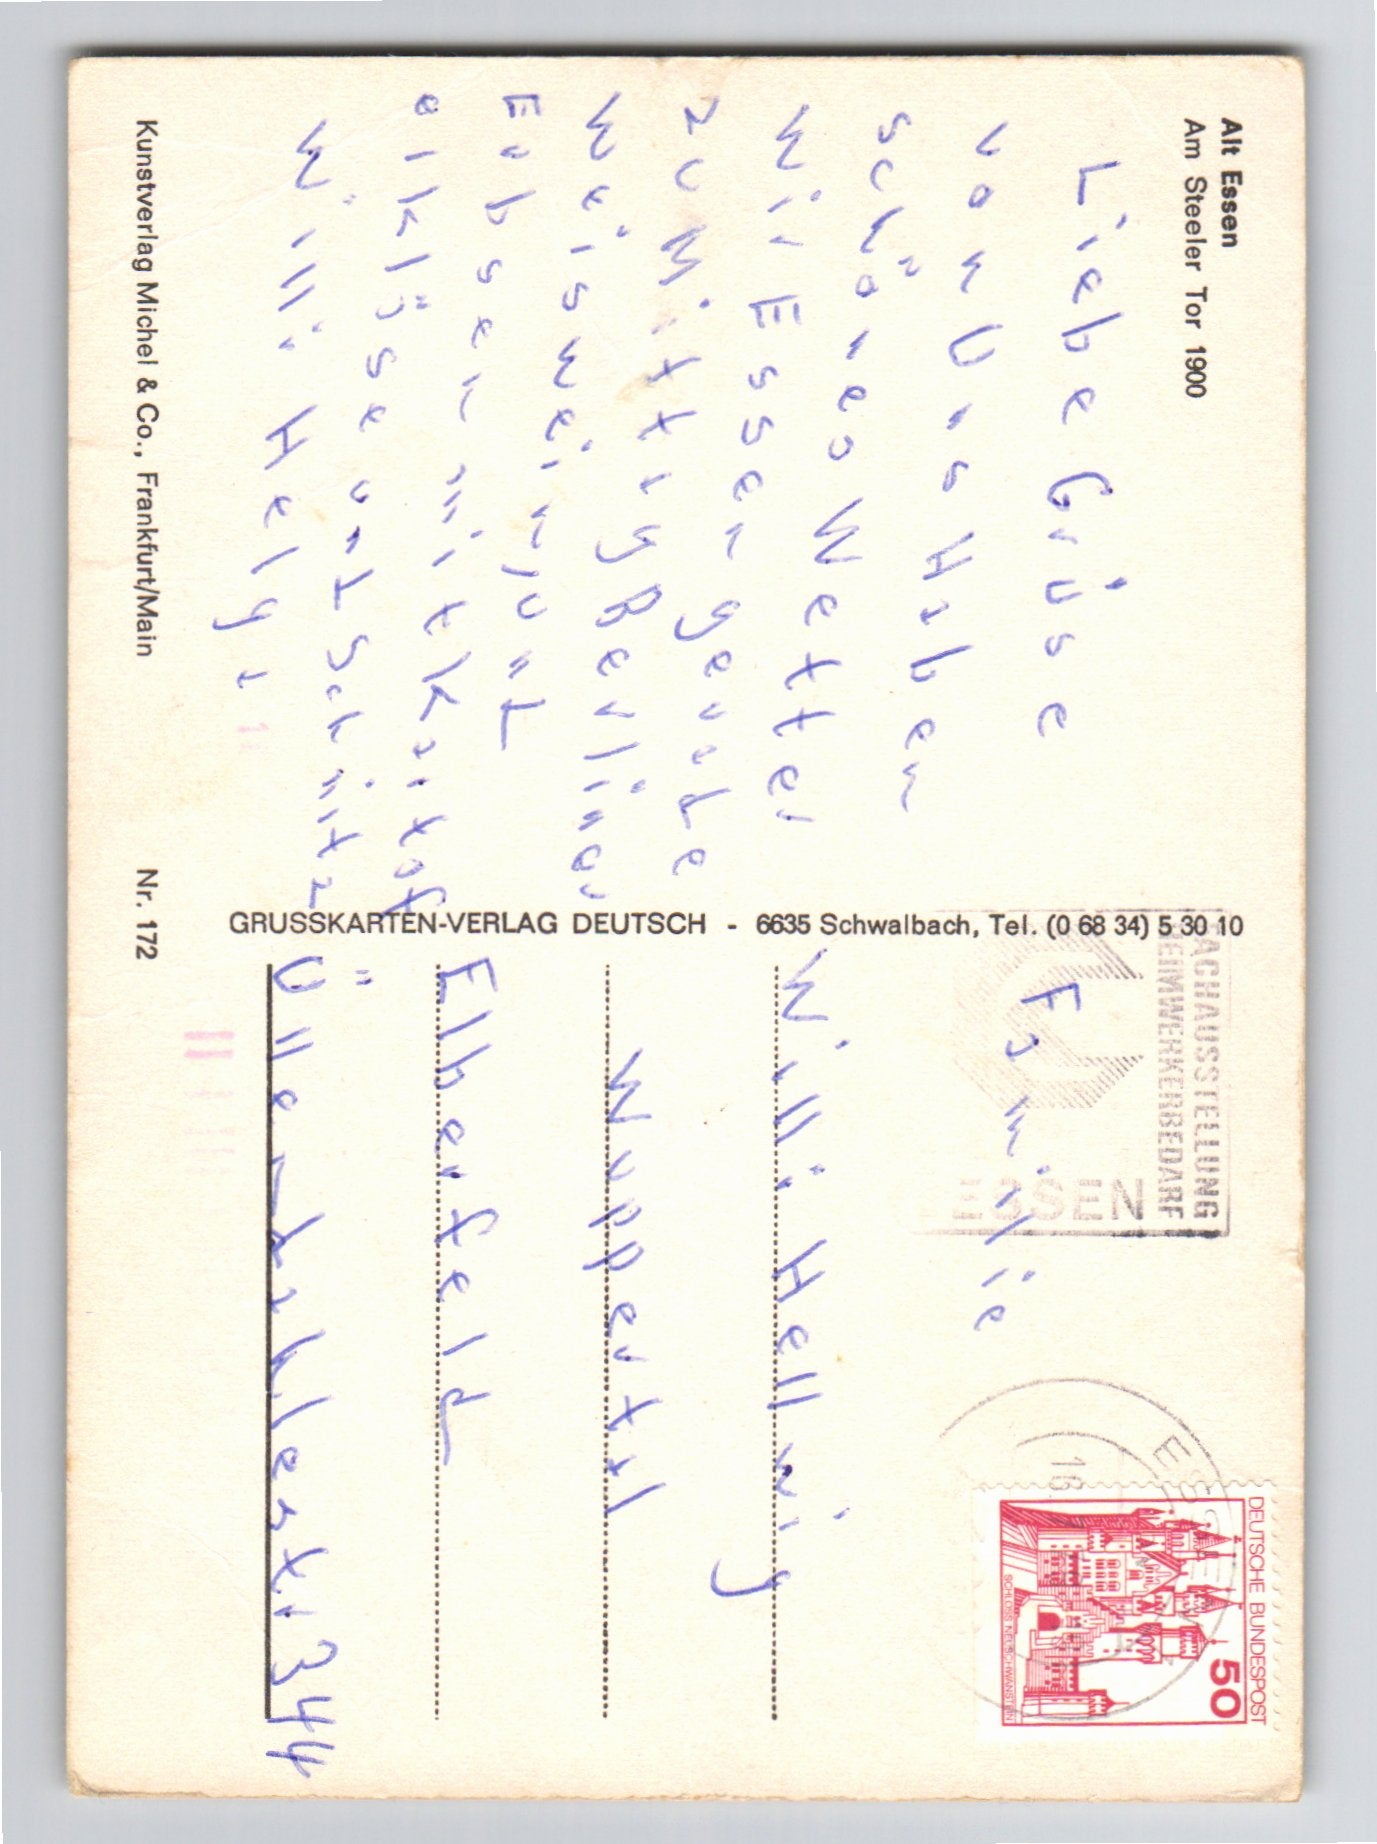 Alt Essen
Am Steeler Tor 1900
Liebe Grüse
von Uns Haben
schönes Wetter
Wir Essen gerade
zu Mittag Berliner
Weiswein, unt
Eubsen mit kartof
elklöse unt Schnitz
Willi Helga
Kunstverlag Michel & Co., Frankfurt/Main
Nr. 172
GRUSSKARTEN-VERLAG DEUTSCH - 6635 Schwalbach, Tel. (0 68 34) 5 30 10
FACHAUSSTELLUNG
HEIMWERKERBEDARF
ESSEN
DEUTSCHE BUNDESPOST
50
SCHLOSS NEUSCHWANSTEIN
Familie
Willi Hellwig
Wuppertal
Elberfeld
Üllendahlerstr 344